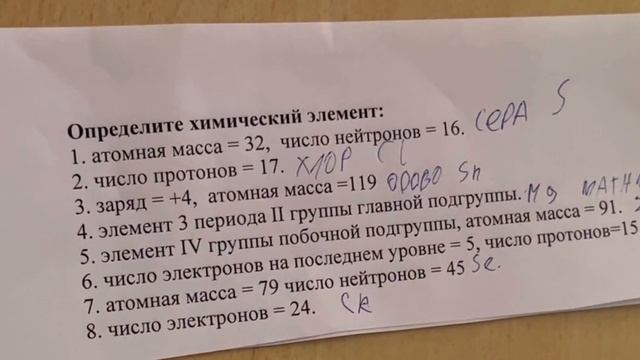 Определите химический элемент:
1. атомная масса = 32, число нейтронов = 16. СЕРА S
2. число протонов = 17. ХЛОР Cl
3. заряд = +4, атомная масса =119 ОЛОВО Sn
4. элемент 3 периода II группы главной подгруппы. Mg МАГН
5. элемент IV группы побочной подгруппы, атомная масса = 91.
6. число электронов на последнем уровне = 5, число протонов=15
7. атомная масса = 79 число нейтронов = 45 Se.
8. число электронов = 24.